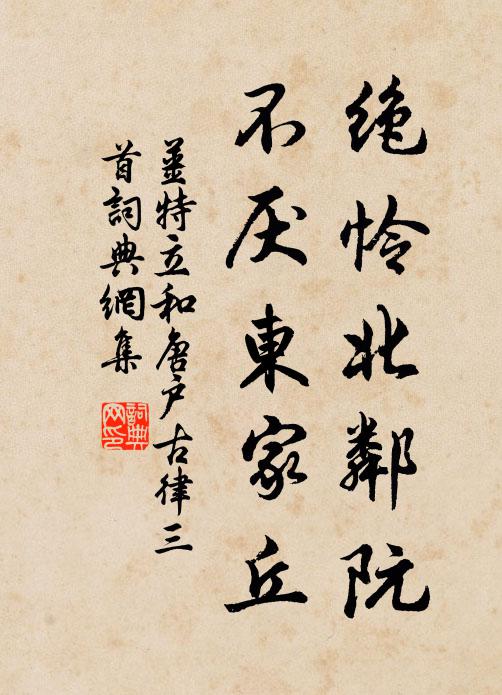 绝怜北邻阮
不厌東家丘
姜特立和唐户古律三
首詞典網集
詞典网印